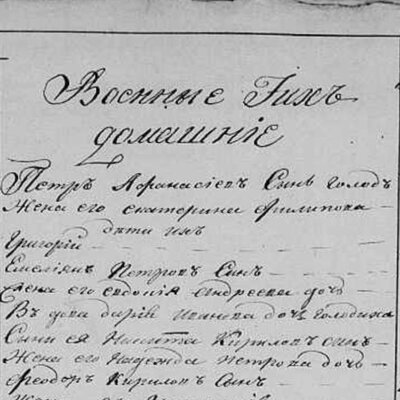 Военные Iихъ
домашнiе
Петръ Афанасiевъ Сынъ голодъ
Жена его екатерина Филипова
дѣти ихъ
Григорiй
Емелiянъ Петровъ Сынъ
Жена его евдокiя андреева дочь
Вдова дарiя иванова дочь голодиха
Сынъ ея Никита Кириловъ сынъ
Жена его надежда петрова дочь
Феодоръ Кириловъ Сынъ
Жена его